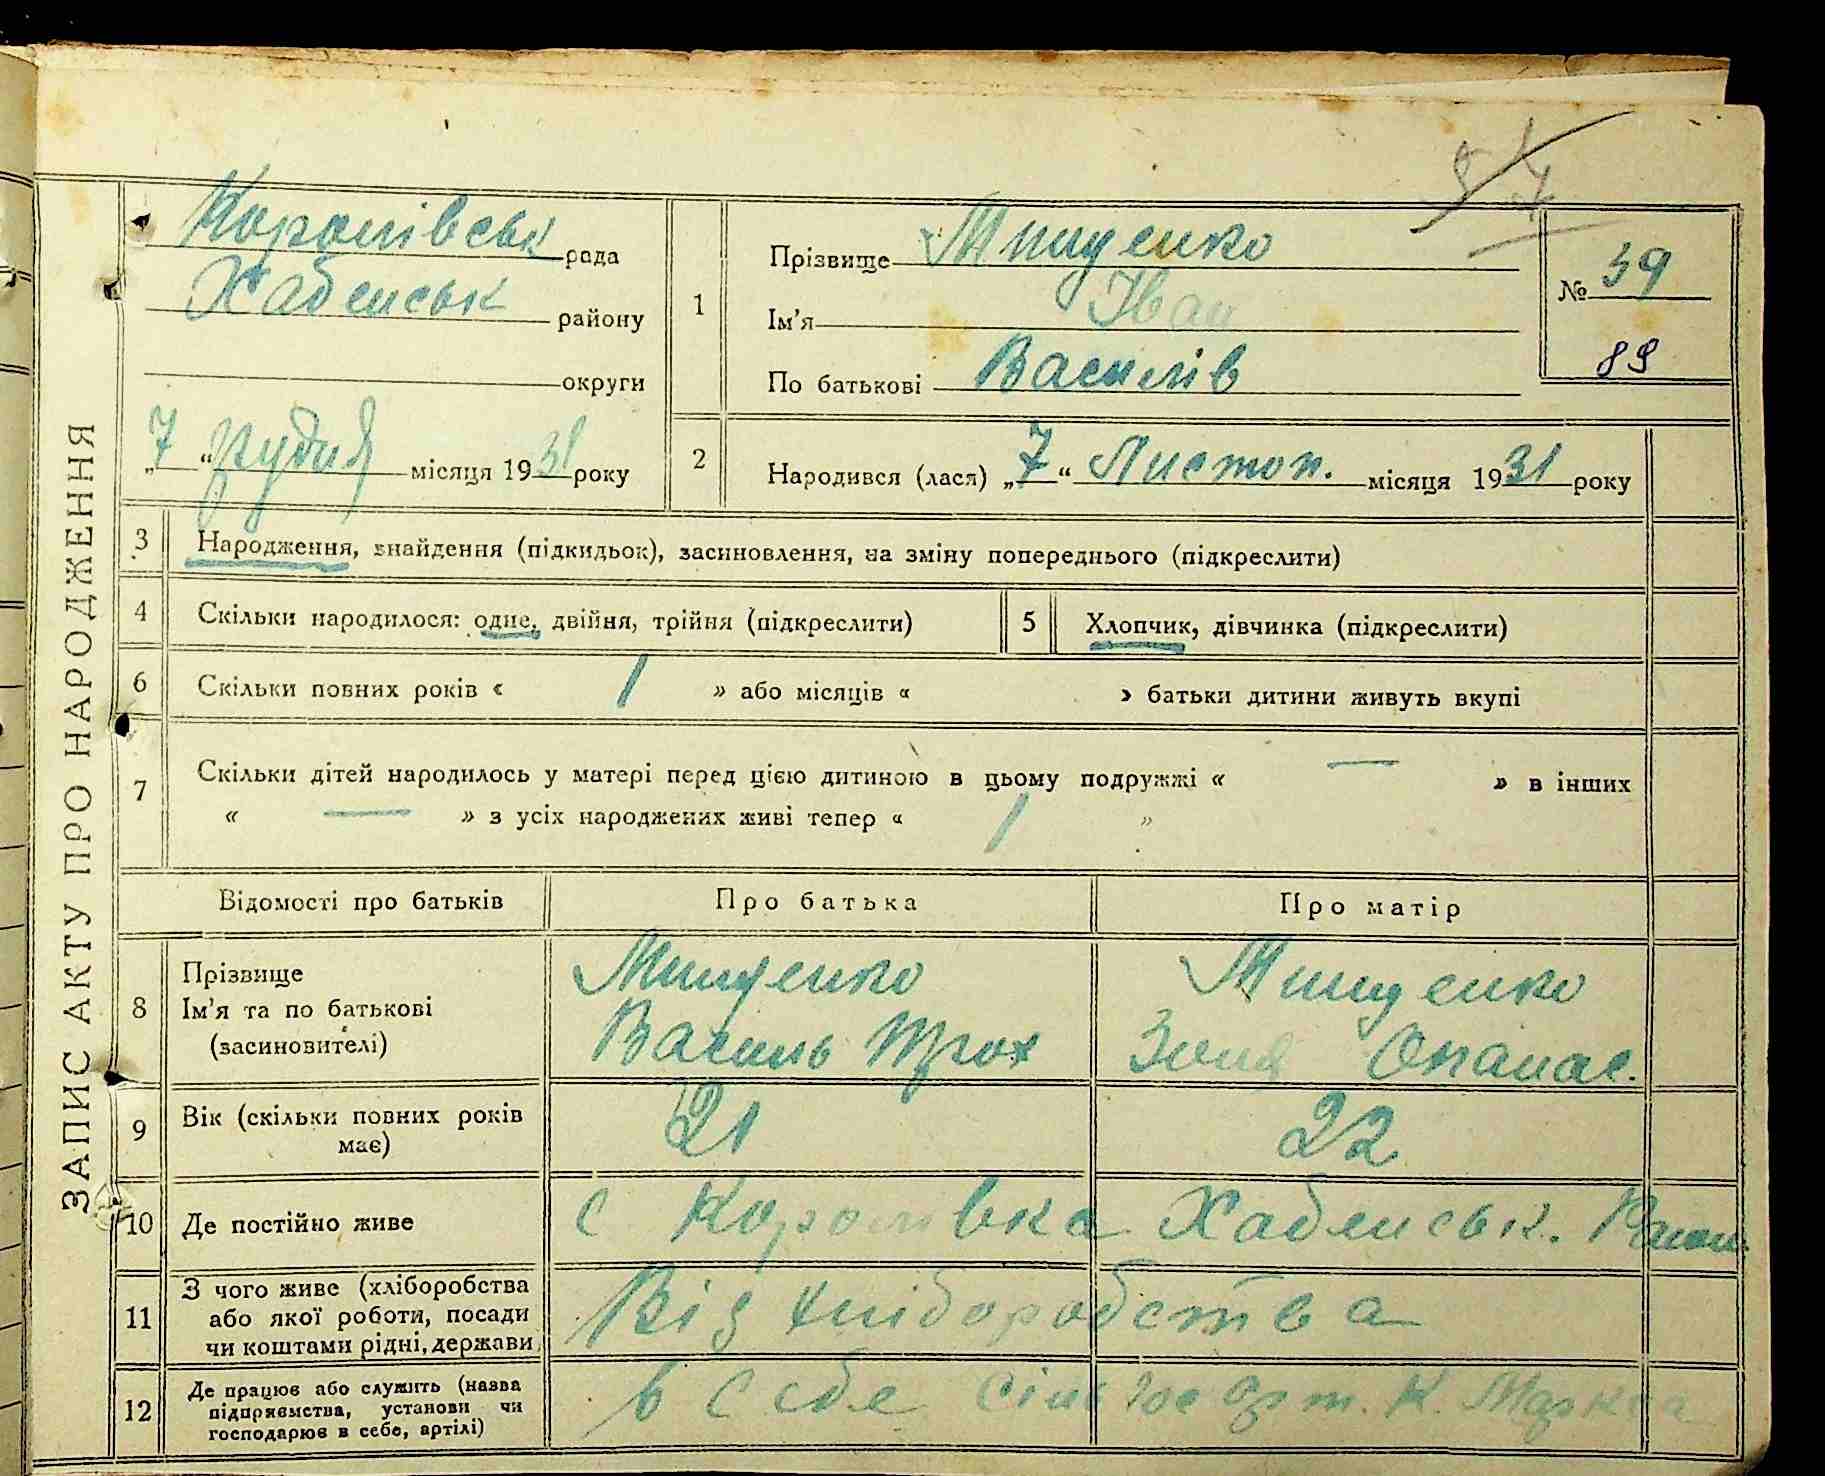 ЗАПИС АКТУ ПРО НАРОДЖЕННЯ
Королівськ рада
Хабенськ району
округи
„7“ Грудня місяця 1931 року
1
Прізвище Мищенко
Ім'я Іван
По батькові Василів
№ 39
89
2
Народився (лася) „7“ Листоп. місяця 1931 року
3 Народження, знайдення (підкидьок), засиновлення, на зміну попереднього (підкреслити)
4 Скільки народилося: одне, двійня, трійня (підкреслити)
5 Хлопчик, дівчинка (підкреслити)
6 Скільки повних років « 1 » або місяців « » батьки дитини живуть вкупі
7 Скільки дітей народилось у матері перед цією дитиною в цьому подружжі « — » в інших
« — » з усіх народжених живі тепер « 1 »
Відомості про батьків Про батька Про матір
8 Прізвище
Ім'я та по батькові
(засиновителі)
Мищенко
Василь Трох
Мищенко
Зоня Опанас.
9 Вік (скільки повних років
має)
21 22
10 Де постійно живе с Королівка Хабенськ. Район.
11 З чого живе (хліборобства
або якої роботи, посади
чи коштами рідні, держави
Від хліборобства
12 Де працює або служить (назва
підприємства, установи чи
господарює в себе, артілі)
в себе сільгос арт. К. Маркса